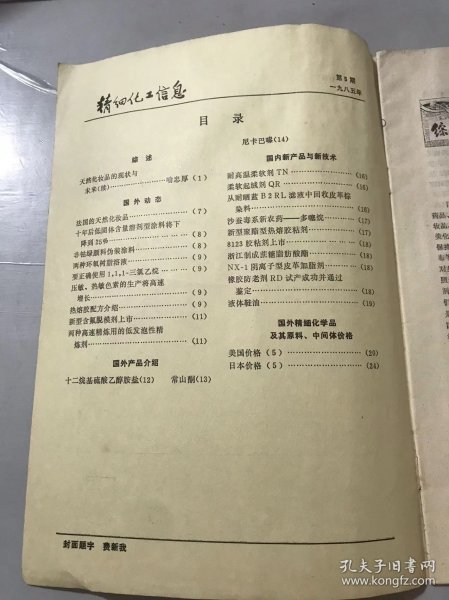 精细化工信息
第5期
一九八五年
目录
综述
天然化妆品的现状与
未来(续)…………………喻志厚(1)
国外动态
法国的天然化妆品……………………(7)
十年后低固体含量溶剂型涂料将下
降到25%………………………(8)
非铬绿颜料伪装涂料…………………(8)
两种环氧树脂溶液……………………(9)
要正确使用1,1,1-三氯乙烷……………(9)
压敏、热敏色素的生产将高速
增长……………………………(9)
热熔胶配方介绍………………………(9)
新型含氟脱模剂上市…………………(11)
两种高速精炼用的低发泡性精
炼剂……………………………(11)
国外产品介绍
十二烷基硫酸乙醇胺盐(12) 常山酮(13)
尼卡巴嗪(14)
国内新产品与新技术
耐高温柔软剂TN……………………(16)
柔软起绒剂QR………………………(16)
从耐晒蓝B2RL滤液中回收皮革棕
染料……………………………(16)
沙蚕毒系新农药——多噻烷…………(17)
新型聚酯型热熔胶粘剂………………(17)
8123胶粘剂上市………………………(18)
浙江制成蔗糖脂肪酸酯………………(18)
NX-1阴离子型皮革加脂剂……………(18)
橡胶防老剂RD试产成功并通过
鉴定……………………………(18)
液体鞋油………………………………(19)
国外精细化学品
及其原料、中间体价格
美国价格(5)…………………………(20)
日本价格(5)…………………………(24)
封面题字 费新我
孔夫子旧书网
www.kongfz.com